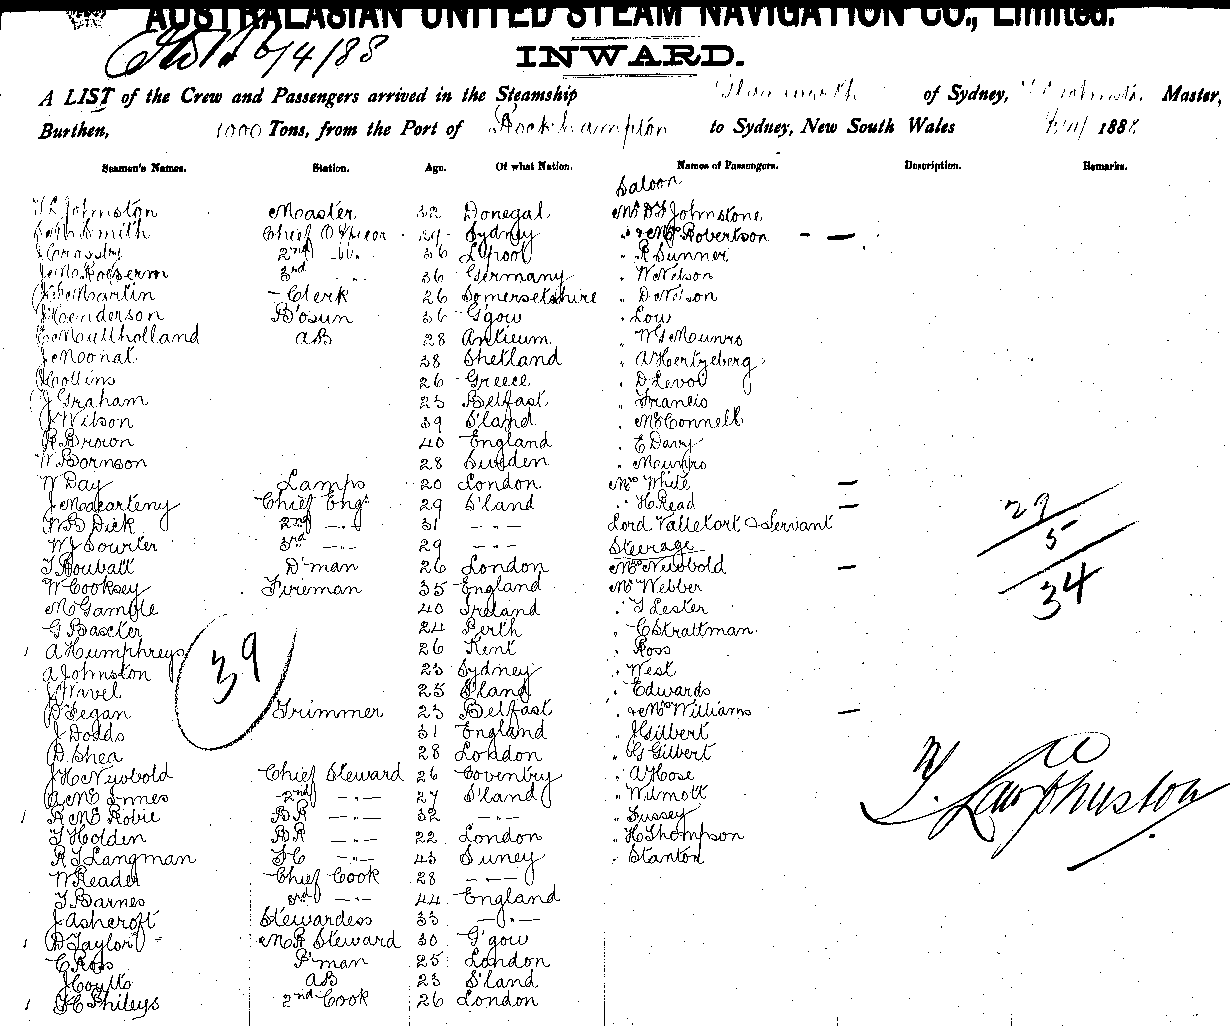 AUSTRALASIAN UNITED STEAM NAVIGATION CO., Limited.
6/4/88
INWARD.
A LIST of the Crew and Passengers arrived in the Steamship of Sydney, Master,
Burthen, 1000 Tons, from the Port of Rockhampton to Sydney, New South Wales 1888
Seamen's Names. Station. Age. Of what Nation. Names of Passengers. Description. Remarks.
Saloon
Johnston Master 32 Donegal Mr Johnstone
Smith Chief Officer 29 Sydney " & Mrs Robertson —
2nd " 36 L'pool " R Sunner
3rd " 36 Germany " W Nelson
Martin Clerk 26 Somersetshire " D Nelson
J Henderson B'osun 36 G'gow " Low
Mullholland AB 28 " W G Munro
J Moonat 38 Shetland " A Hertzeberg
J Collins 26 Greece " D Levor
J Graham 23 Belfast " Francis
J Wilson 39 S'land " McConnell
R Brown 40 England " E Davy
W Bornson 28 Sweden " Munro
W Day Lamps 20 London Mrs White —
J Macarteny Chief Engr 29 S'land " H Read —
W B Dick 2nd —"— 31 —"— Lord Valletort & Servant
W J Sourter 3rd —"— 29 —"— Steerage
T Bouball D'man 26 London Mrs Newbold —
W Cooksey Fireman 35 England Mr Webber
McGamble 40 Ireland " T Lester
G Baxter 24 Perth " C Strattman
A Humphreys 26 Kent " Ross
A Johnston 23 Sydney " West
25 S'land " Edwards
D Fegan Trimmer 23 Belfast " & Mrs Williams —
J Dodds 31 England " J Gilbert
D Shea 28 London " G Gilbert
J H Newbold Chief Steward 26 Coventry " A Hose
A McInnes 2nd —"— 27 S'land " Wilmott
R McRobie BR —"— 32 —"— " Fussey
T Holden BR —"— 22 London " H Thompson
R J Langman FC —"— 43 Surrey " Stanton
W Reader Chief Cook 28 —"—
T Barnes 3rd —"— 44 England
J Ashcroft Stewardess 33 —"—
D Taylor MR Steward 30 G'gow
C Ross P'man 25 London
J Coutts AB 23 S'land
H C Phileys 2nd Cook 26 London
39
29
5
34
T. Law Johnston